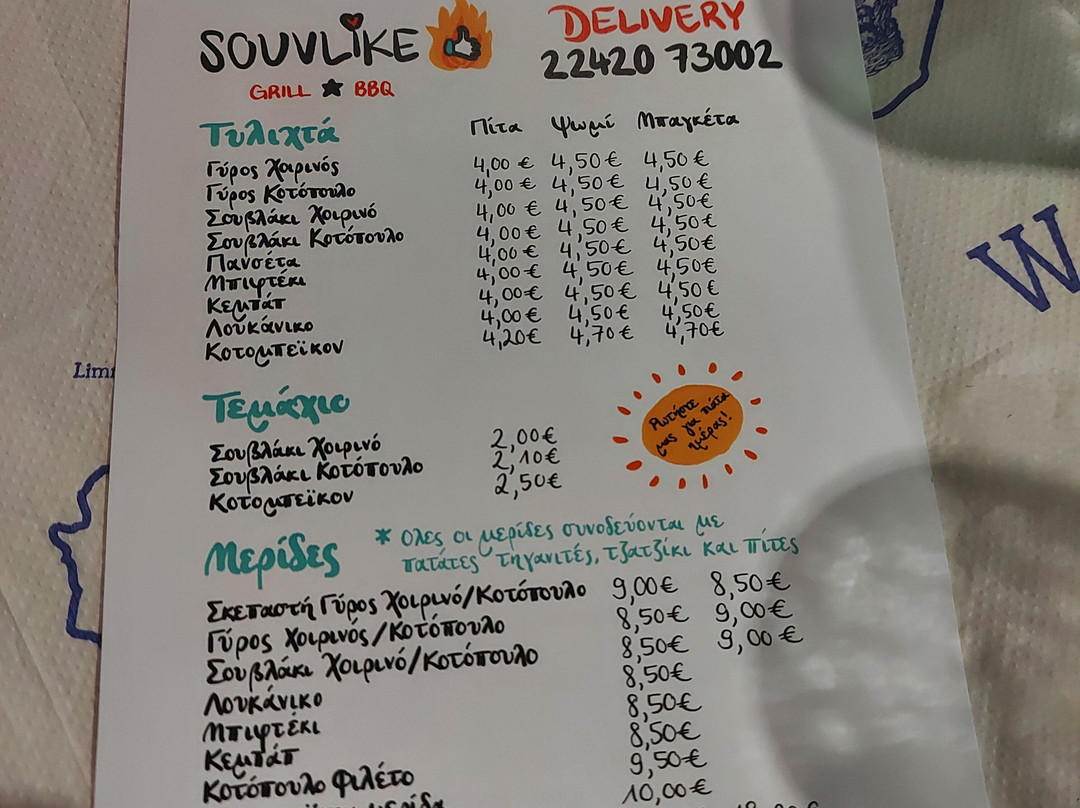 SOUVLIKE
GRILL ★ BBQ
DELIVERY
22420 73002
Τυλιχτά Πίτα Ψωμί Μπαγκέτα
Γύρος Χοιρινός 4,00 € 4,50 € 4,50 €
Γύρος Κοτόπουλο 4,00 € 4,50 € 4,50 €
Σουβλάκι Χοιρινό 4,00 € 4,50 € 4,50€
Σουβλάκι Κοτόπουλο 4,00 € 4,50 € 4,50€
Πανσέτα 4,00 € 4,50€ 4,50€
Μπιφτέκι 4,00 € 4,50€ 4,50€
Κεμπάπ 4,00€ 4,50€ 4,50€
Λουκάνικο 4,00€ 4,50€ 4,50€
Κοτομπέϊκον 4,20€ 4,70€ 4,70€
Τεμάχιο
Σουβλάκι Χοιρινό 2,00€
Σουβλάκι Κοτόπουλο 2,10€
Κοτομπεϊκον 2,50€
Ρωτήστε
μας για πιάτα
ημέρας!
Μερίδες
* Όλες οι μερίδες συνοδεύονται με
πατάτες τηγανιτές, τζατζίκι και πίτες
Σκεπαστή Γύρος Χοιρινό/Κοτόπουλο 9,00€ 8,50€
Γύρος Χοιρινός/Κοτόπουλο 8,50€ 9,00€
Σουβλάκι Χοιρινό/Κοτόπουλο 8,50€ 9,00€
Λουκάνικο 8,50€
Μπιφτέκι 8,50€
Κεμπάπ 8,50€
Κοτόπουλο Φιλέτο 9,50€
10,00€
W